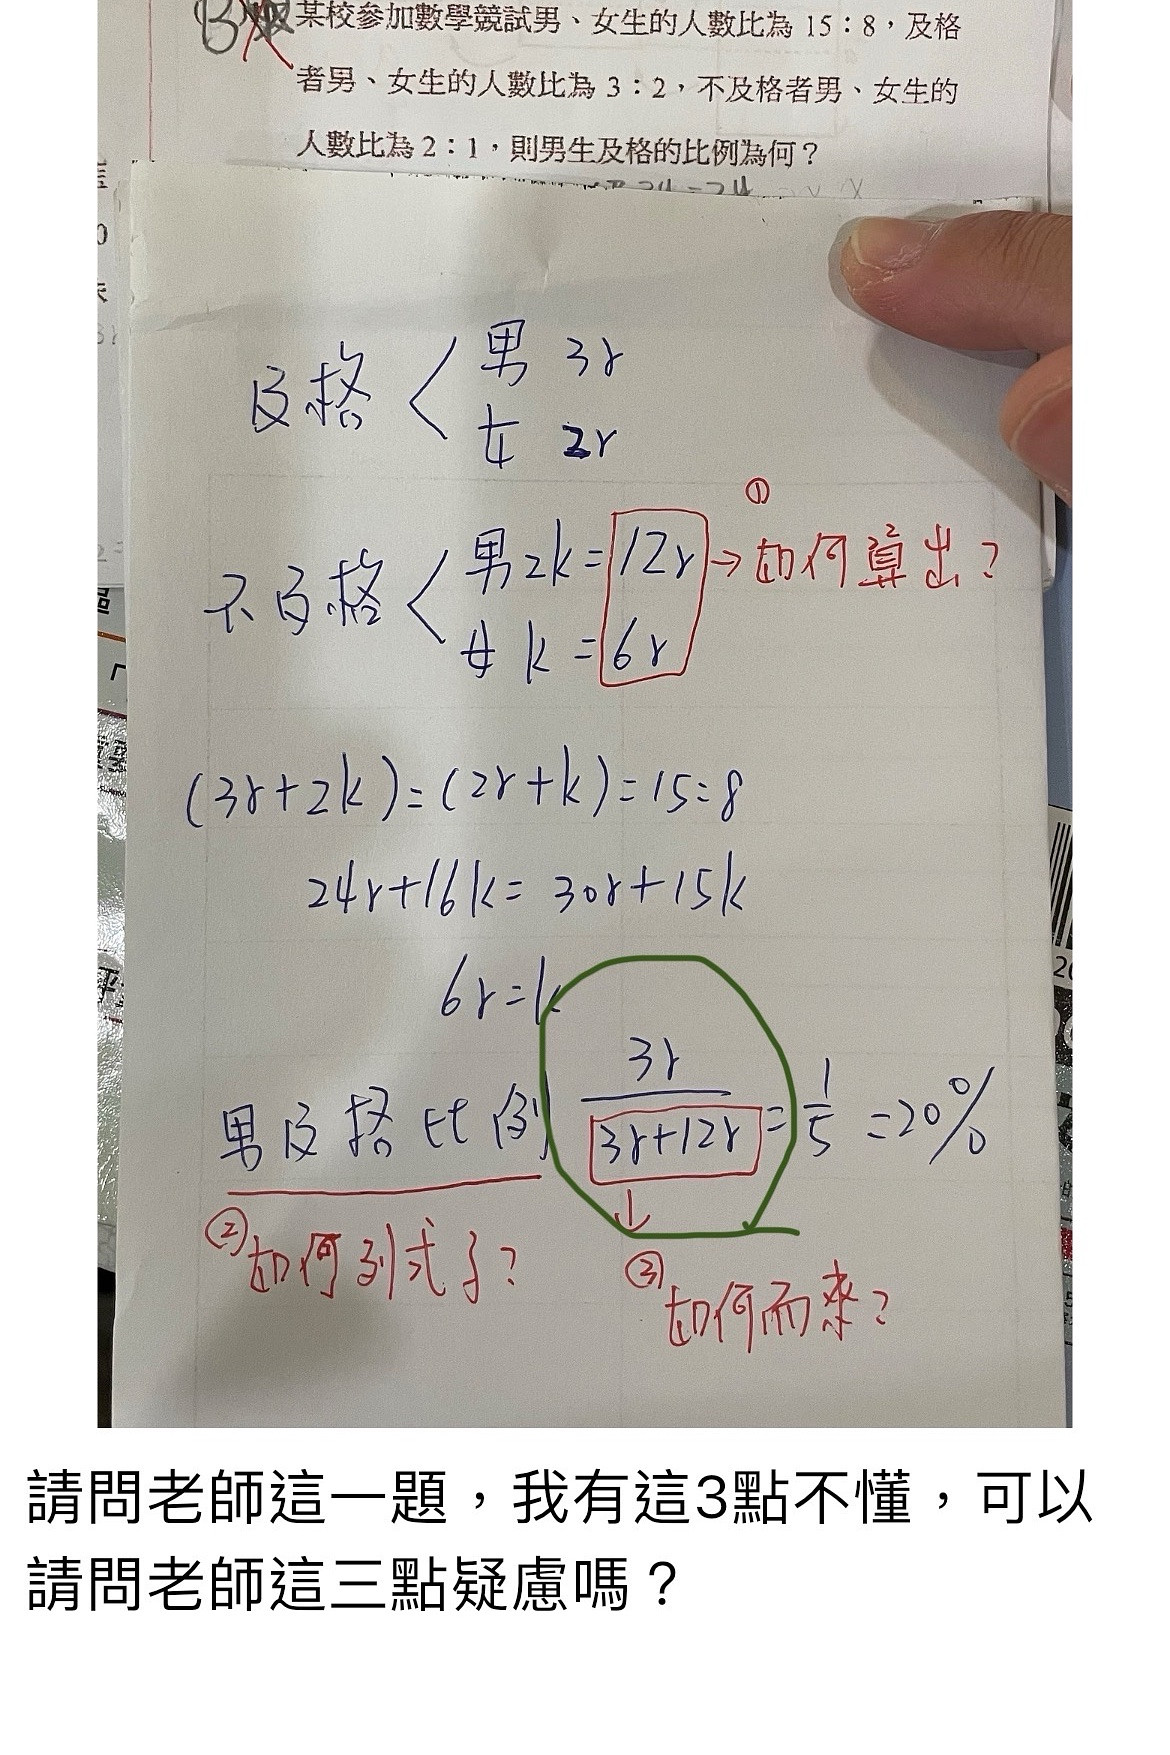 某校參加數學競試男、女生的人數比為 15：8，及格
者男、女生的人數比為 3：2，不及格者男、女生的
人數比為 2：1，則男生及格的比例為何？
及格 男 3r
女 2r
①
不及格 男 2k = 12r → 如何算出？
女 k = 6r
(3r+2k) : (2r+k) = 15 : 8
24r+16k = 30r+15k
6r = k
男及格比例 3r / 3r+12r = 1/5 = 20%
② 如何列式子？
③ 如何而來？
請問老師這一題，我有這3點不懂，可以
請問老師這三點疑慮嗎？